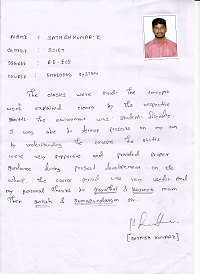 NAME : SATHISH KUMAR. R
COLLEGE : SSIET
DEGREE : B.E - ECE
COURSE : EMBEDDED SYSTEM
The classes were good. The concepts
were explained clearly by the respective
staffs. The environment was student friendly.
I was able to develop projects on my own
by understanding the concepts. The staffs
were very supportive and provided proper
guidance during project development. On the
whole, the course period was very useful. And
my personal thanks to & mam
Then & sir.
[SATHISH KUMAR]